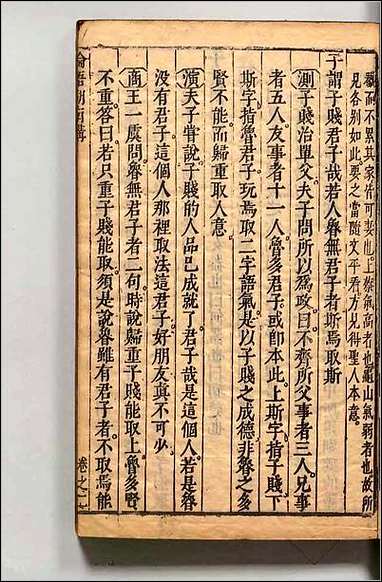 觀而不累其家皆可妻也上樑氣高者也龜山氣弱者也故所
見各別如此要之當隨文平看方見得聖人本意
子謂子賤君子哉若人魯無君子者斯焉取斯
測子賤治單父夫子問所以爲政曰不齊所父事者三人兄事
者五人友事者十一人魯多君子或卽本此上斯字指子賤下
斯字指魯君子玩焉取二字語氣是以子賤之成德非魯之多
賢不能而歸重取人意
演夫子嘗說子賤的人品已成就了君子哉是這個人若是魯
沒有君子這個人那裡取法這君子好朋友真不可少
商王一質問魯無君子者二句時說歸重子賤能取上魯多賢
不重答曰若只重子賤能取須是說魯雖有君子者不取焉能
論語湖南講
卷之一